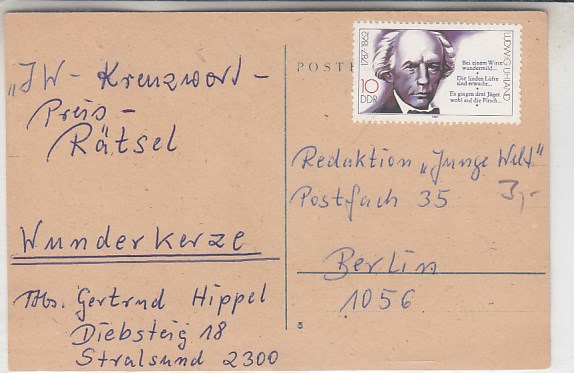 „JW-Kreuzwort-
Preis-
Rätsel
Wunderkerze
Abs. Gertrud Hippel
Diebsteig 18
Stralsund 2300
POSTK
1787-1862
LUDWIG UHLAND
Bei einem Wirte
wundermild...
Die linden Lüfte
sind erwacht...
Es gingen drei Jäger
wohl auf die Pirsch...
10
DDR
Redaktion „Junge Welt"
Postfach 35
3,-
Berlin
1056